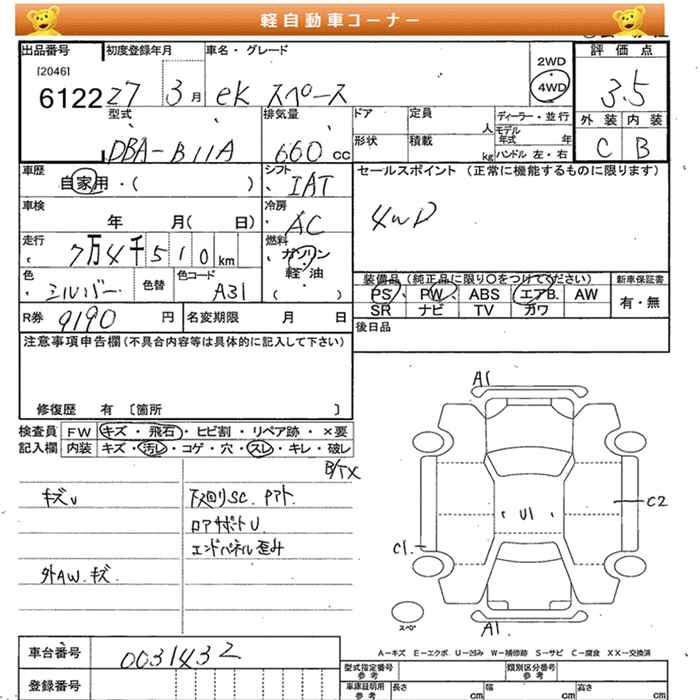 軽自動車コーナー
出品番号 初度登録年月 車名・グレード 評価点
[2046]
6122 27 3月 ek スペース 2WD 4WD 3.5
型式 排気量 ドア 定員 人 ディーラー・並行 外装 内装
DBA-B11A 660cc 形状 積載 kg モデル年式 年 ハンドル 左・右 C B
車歴 自家用・( ) シフト IAT セールスポイント (正常に機能するものに限ります)
車検 年 月( 日) 冷房 AC 4WD
走行 7万4千510km 燃料 ガソリン 軽油 ( )
色 シルバー 色替 色コード A31 装備品(純正品に限り○をつけてください) 新車保証書
PS PW ABS エアB. AW 有・無
SR ナビ TV カワ
R券 9190円 名変期限 月 日 後日品
注意事項申告欄(不具合内容等は具体的に記入して下さい)
修復歴 有 〔箇所 〕
検査員 FW キズ・飛石・ヒビ割・リペア跡・×要
記入欄 内装 キズ・汚レ・コゲ・穴・スレ・キレ・破レ
B/TX
キズv 下廻りSC. Pアト.
ロアサポートU.
エンドパネル歪み
外AW.キズ.
A1
C2
U1
C1
A1
スペア
A-キズ E-エクボ U-凹み W-補修跡 S-サビ C-腐食 XX-交換済
車台番号 0031432 型式指定番号 参考 類別区分番号 参考
登録番号 車庫証明用 参考 長さ cm 幅 cm 高さ cm